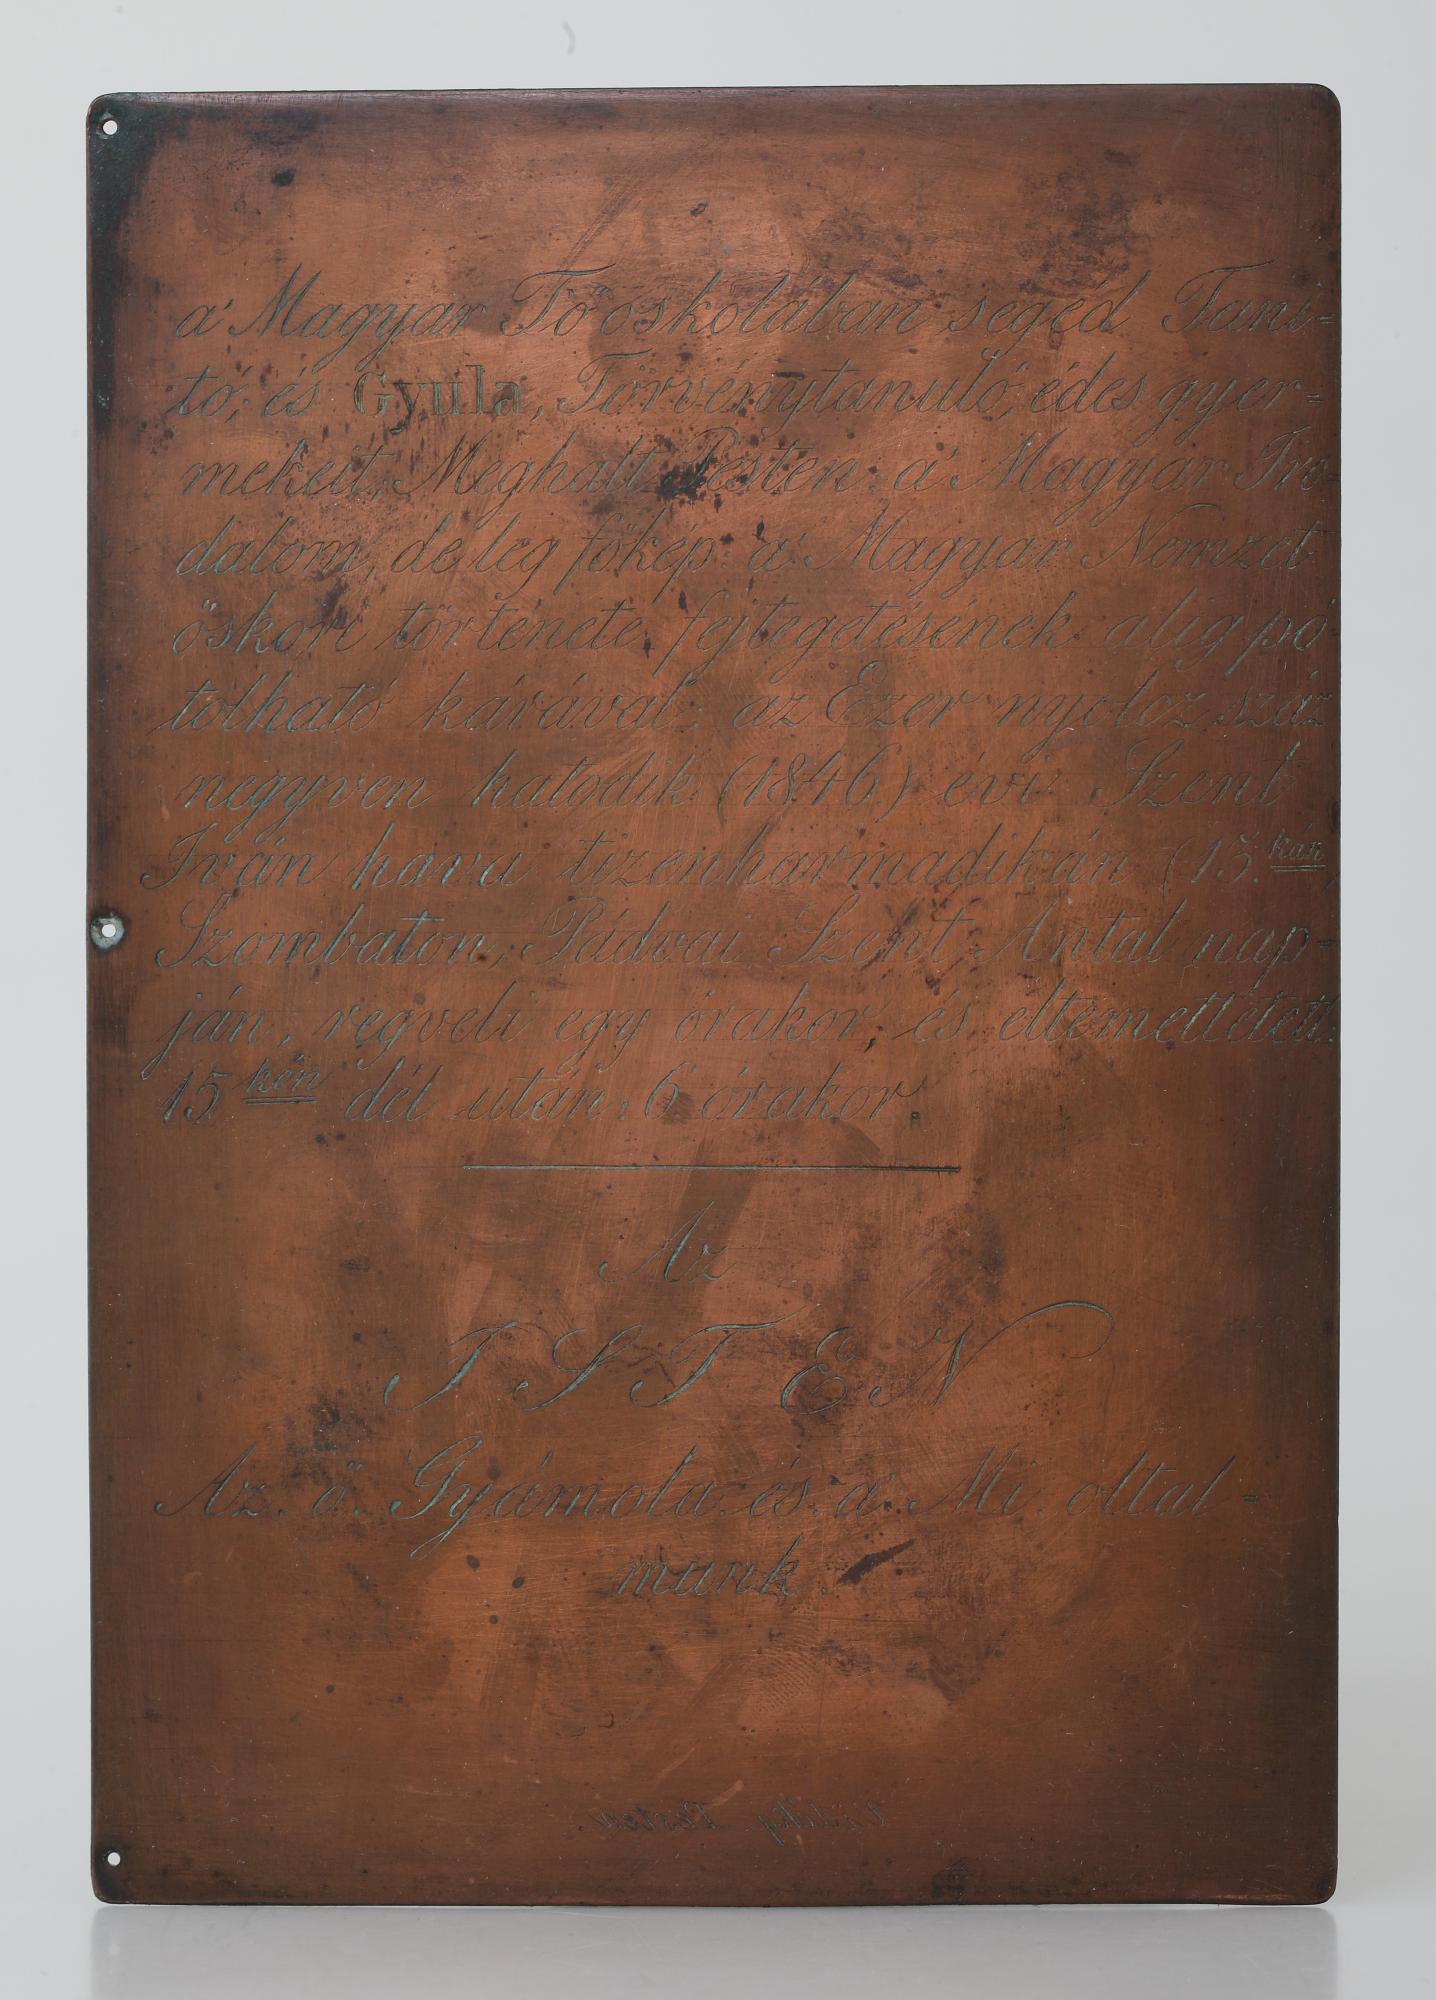 a' Magyar Fő oskolában segéd Tani=
tó; és Gyula, Törvénytanuló, édes gyer=
mekeit; Meghalt Pesten: a' Magyar Iro=
dalom, de leg főkép: a' Magyar Nemzet
őskori története fejtegetésének alig pó=
tolható kárával: az Ezer nyolcz száz
negyven hatodik (1846) évi Szent
Iván hava tizenharmadikán (13. kán)
Szombaton, Pádvai Szent Antal nap=
ján, regveli egy órakor, és eltemettetett:
15 kén dél után: 6 órakor
Az
ISTEN
Az. ő. Gyámola. és. a'. Mi. oltal=
munk.
Pesten.